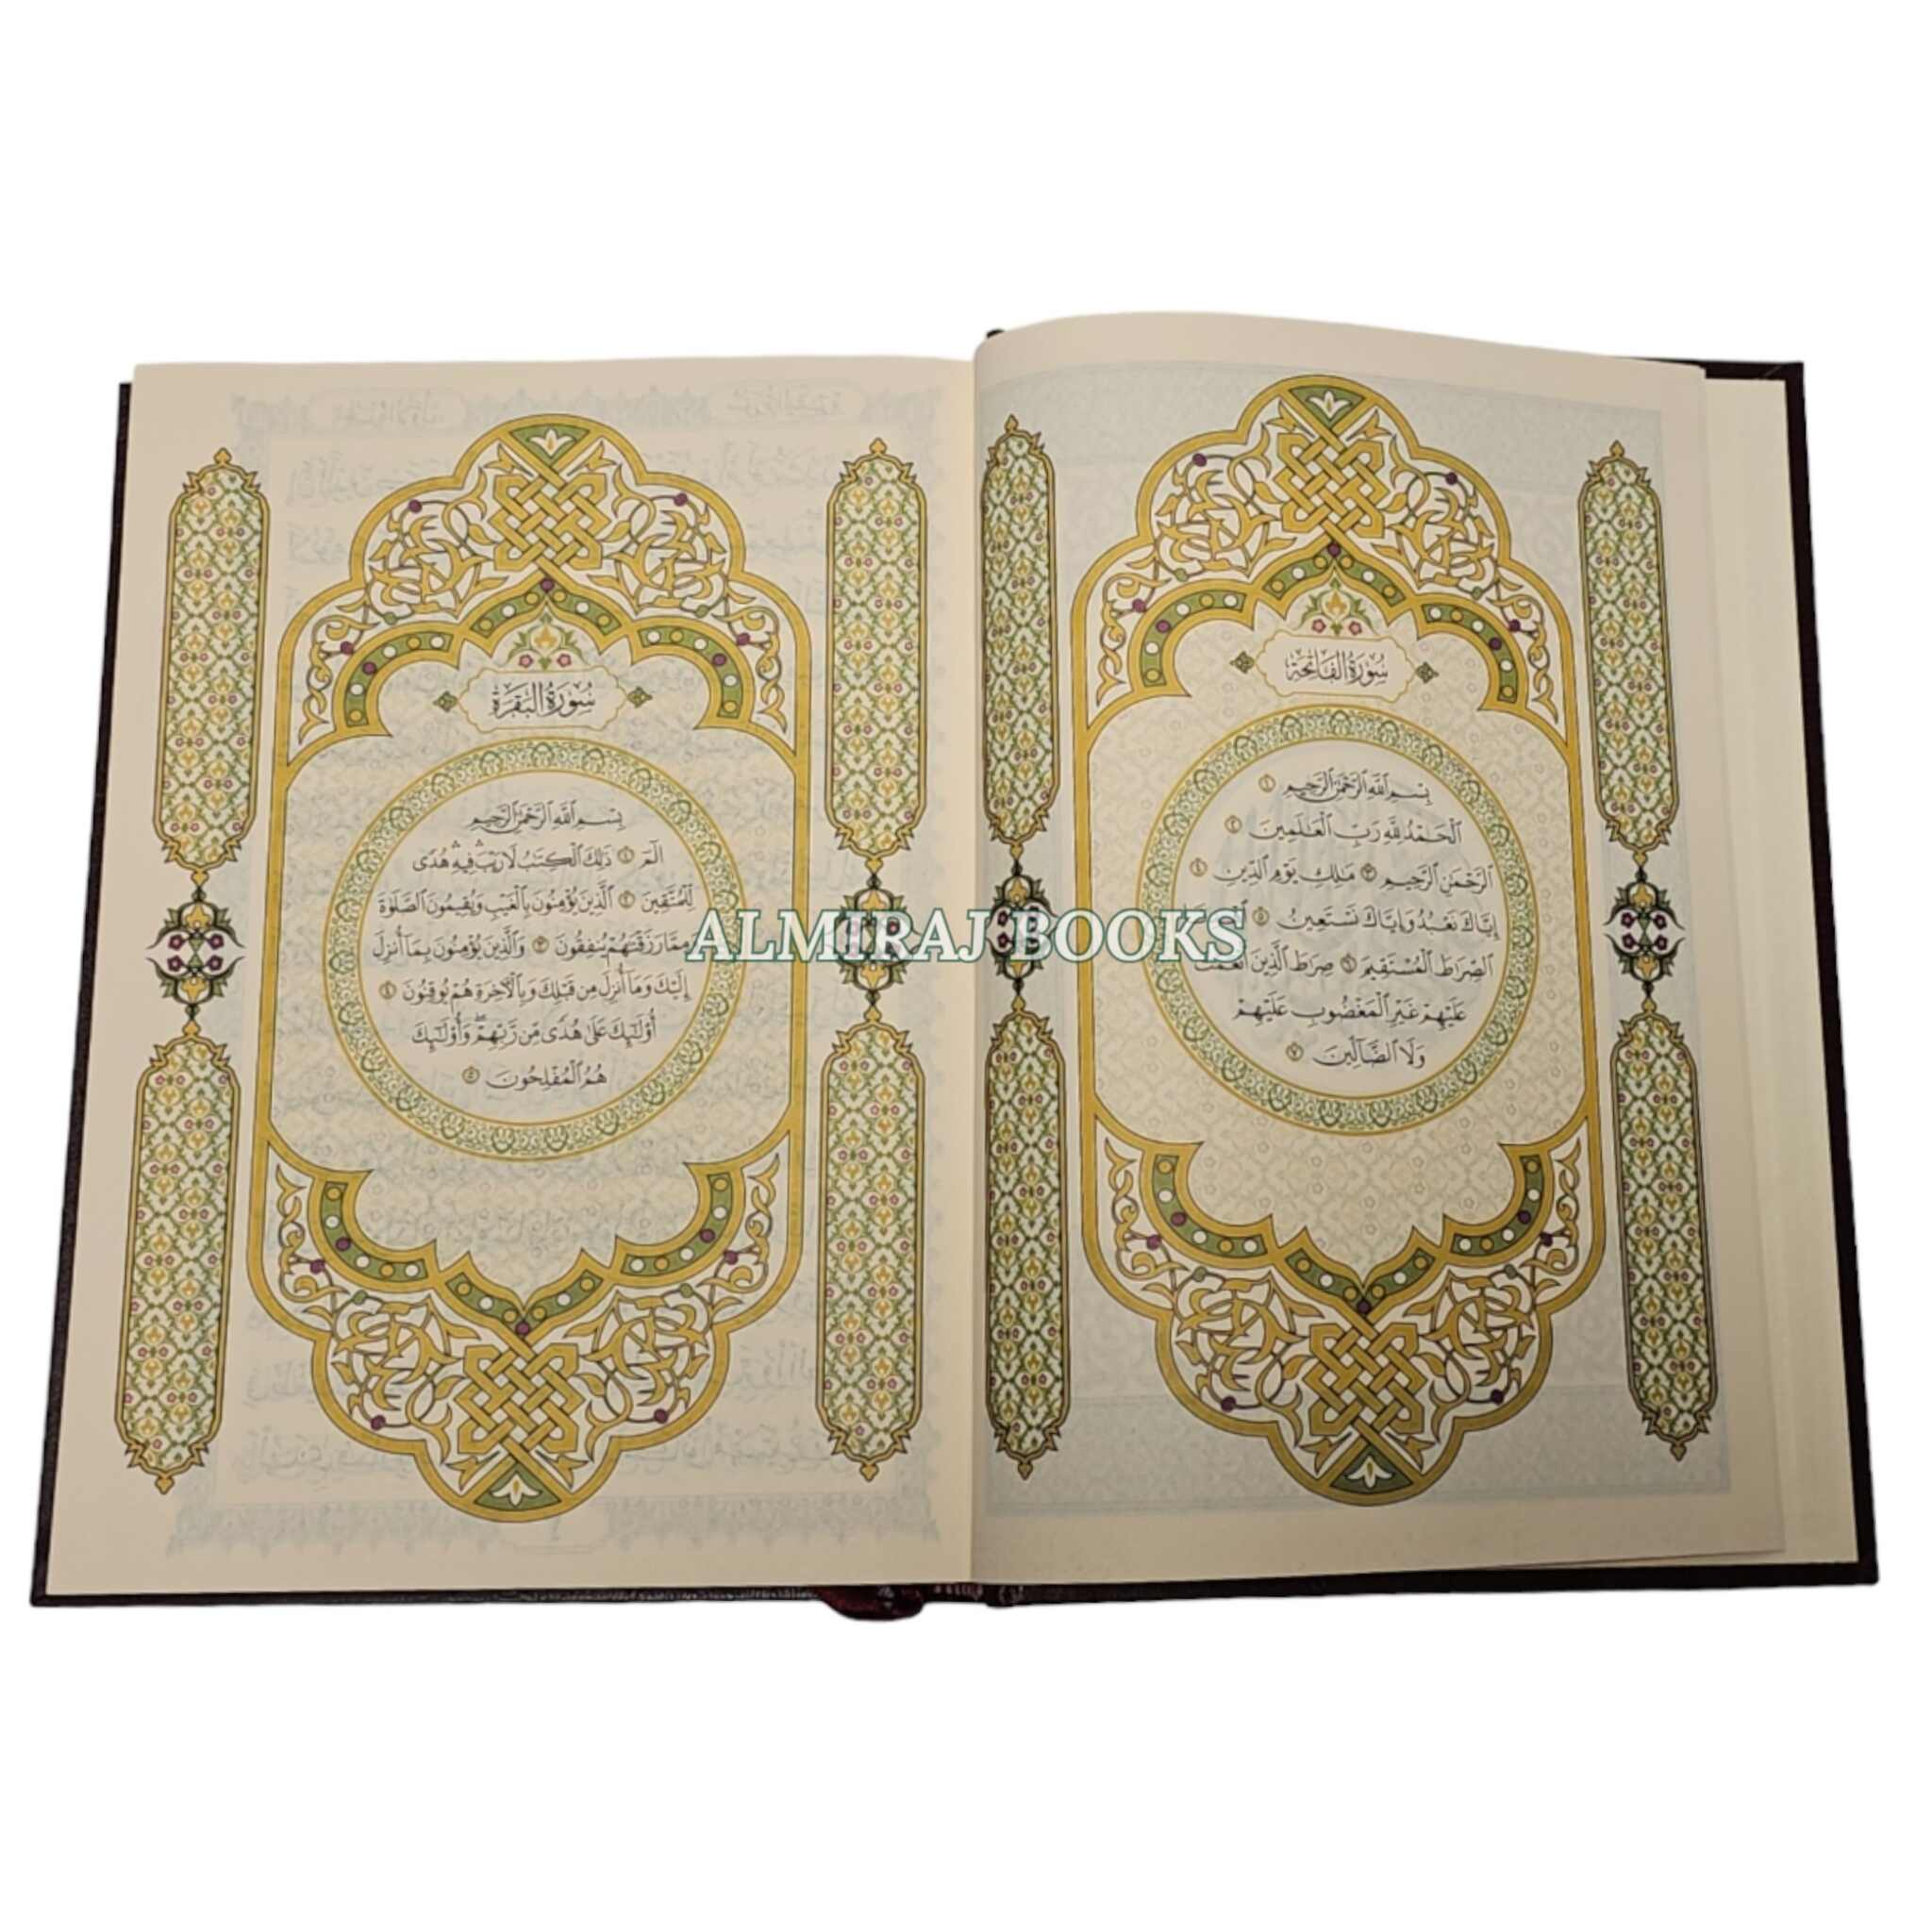 سُورَةُ الفَاتِحَة
بِسْمِ ٱللَّهِ ٱلرَّحْمَٰنِ ٱلرَّحِيمِ ١
ٱلْحَمْدُ لِلَّهِ رَبِّ ٱلْعَٰلَمِينَ ٢
ٱلرَّحْمَٰنِ ٱلرَّحِيمِ ٣ مَٰلِكِ يَوْمِ ٱلدِّينِ ٤
إِيَّاكَ نَعْبُدُ وَإِيَّاكَ نَسْتَعِينُ ٥
ٱلصِّرَٰطَ ٱلْمُسْتَقِيمَ ٦ صِرَٰطَ ٱلَّذِينَ أَنْعَمْتَ
عَلَيْهِمْ غَيْرِ ٱلْمَغْضُوبِ عَلَيْهِمْ
وَلَا ٱلضَّآلِّينَ ٧
سُورَةُ البَقَرَة
بِسْمِ ٱللَّهِ ٱلرَّحْمَٰنِ ٱلرَّحِيمِ
الٓمٓ ١ ذَٰلِكَ ٱلْكِتَٰبُ لَا رَيْبَ ۛ فِيهِ ۛ هُدًى
لِّلْمُتَّقِينَ ٢ ٱلَّذِينَ يُؤْمِنُونَ بِٱلْغَيْبِ وَيُقِيمُونَ ٱلصَّلَوٰةَ
وَمِمَّا رَزَقْنَٰهُمْ يُنفِقُونَ ٣ وَٱلَّذِينَ يُؤْمِنُونَ بِمَآ أُنزِلَ
إِلَيْكَ وَمَآ أُنزِلَ مِن قَبْلِكَ وَبِٱلْءَاخِرَةِ هُمْ يُوقِنُونَ ٤
أُو۟لَٰٓئِكَ عَلَىٰ هُدًى مِّن رَّبِّهِمْ ۖ وَأُو۟لَٰٓئِكَ
هُمُ ٱلْمُفْلِحُونَ ٥
ALMIRAJ BOOKS